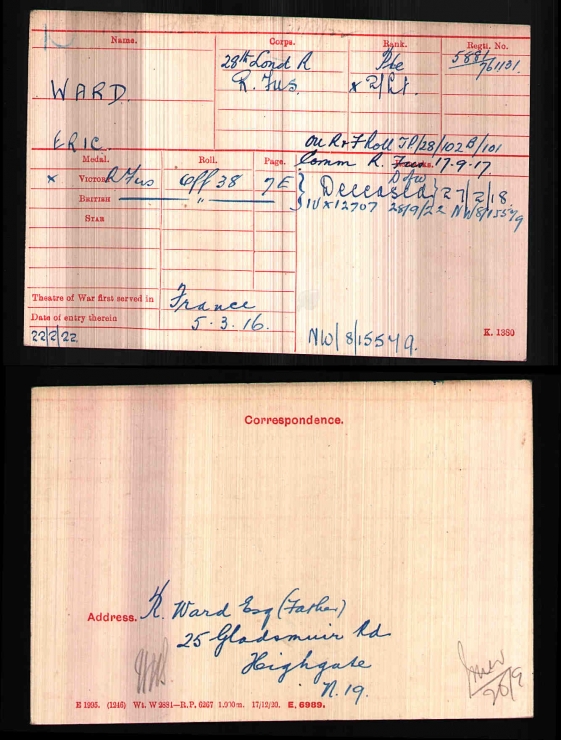 Name. Corps. Rank. Regtl. No.
28th Lond R Pte 5881/761131.
WARD. R. Fus. x 2/Lt.
ERIC. on R & F Roll TP/28/102B/101
Medal. Roll. Page. Comm R. Fus. 17-9-17.
D of W
x VICTORY R Fus Off 38 7E } Deceased } 27/2/18.
BRITISH " IV x 12707 28/9/22 NW/8/15579
STAR
Theatre of War first served in France
Date of entry therein 5.3.16.
22/2/22. NW/8/15579. K. 1380
Correspondence.
Address. K. Ward Esq (Father)
25 Gladsmuir Rd
Highgate
N. 19.
E 1995. (1246) Wt. W 2881—R.P. 6267 17/12/20. E. 6989.